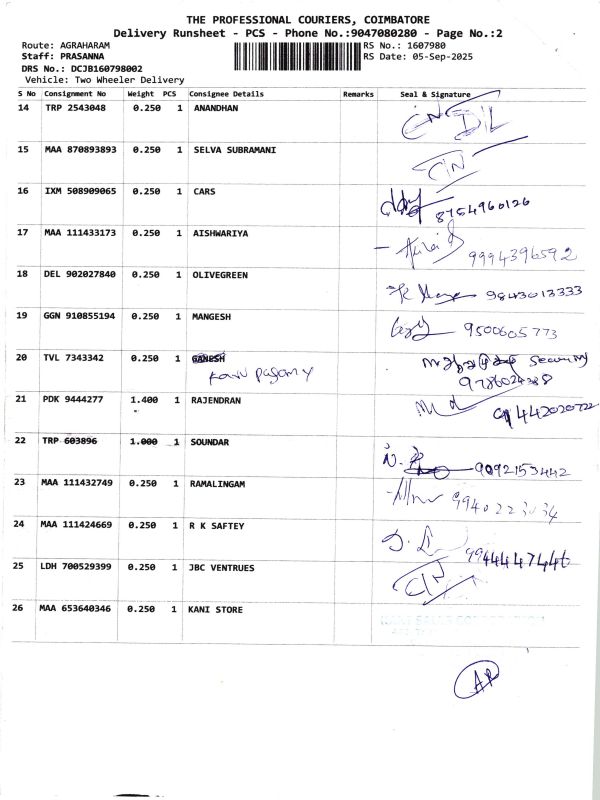 THE PROFESSIONAL COURIERS, COIMBATORE
Delivery Runsheet - PCS - Phone No.:9047080280 - Page No.:2
Route: AGRAHARAM RS No.: 1607980
Staff: PRASANNA RS Date: 05-Sep-2025
DRS No.: DCJB160798002
Vehicle: Two Wheeler Delivery
S No Consignment No Weight PCS Consignee Details Remarks Seal & Signature
14 TRP 2543048 0.250 1 ANANDHAN
15 MAA 870893893 0.250 1 SELVA SUBRAMANI
16 IXM 508909065 0.250 1 CARS 8754960126
17 MAA 111433173 0.250 1 AISHWARIYA 9994396592
18 DEL 902027840 0.250 1 OLIVEGREEN 9843013333
19 GGN 910855194 0.250 1 MANGESH 9500605773
20 TVL 7343342 0.250 1 GANESH security
21 PDK 9444277 1.400 1 RAJENDRAN
22 TRP 603896 1.000 1 SOUNDAR 9092153442
23 MAA 111432749 0.250 1 RAMALINGAM
24 MAA 111424669 0.250 1 R K SAFTEY
25 LDH 700529399 0.250 1 JBC VENTRUES
26 MAA 653640346 0.250 1 KANI STORE